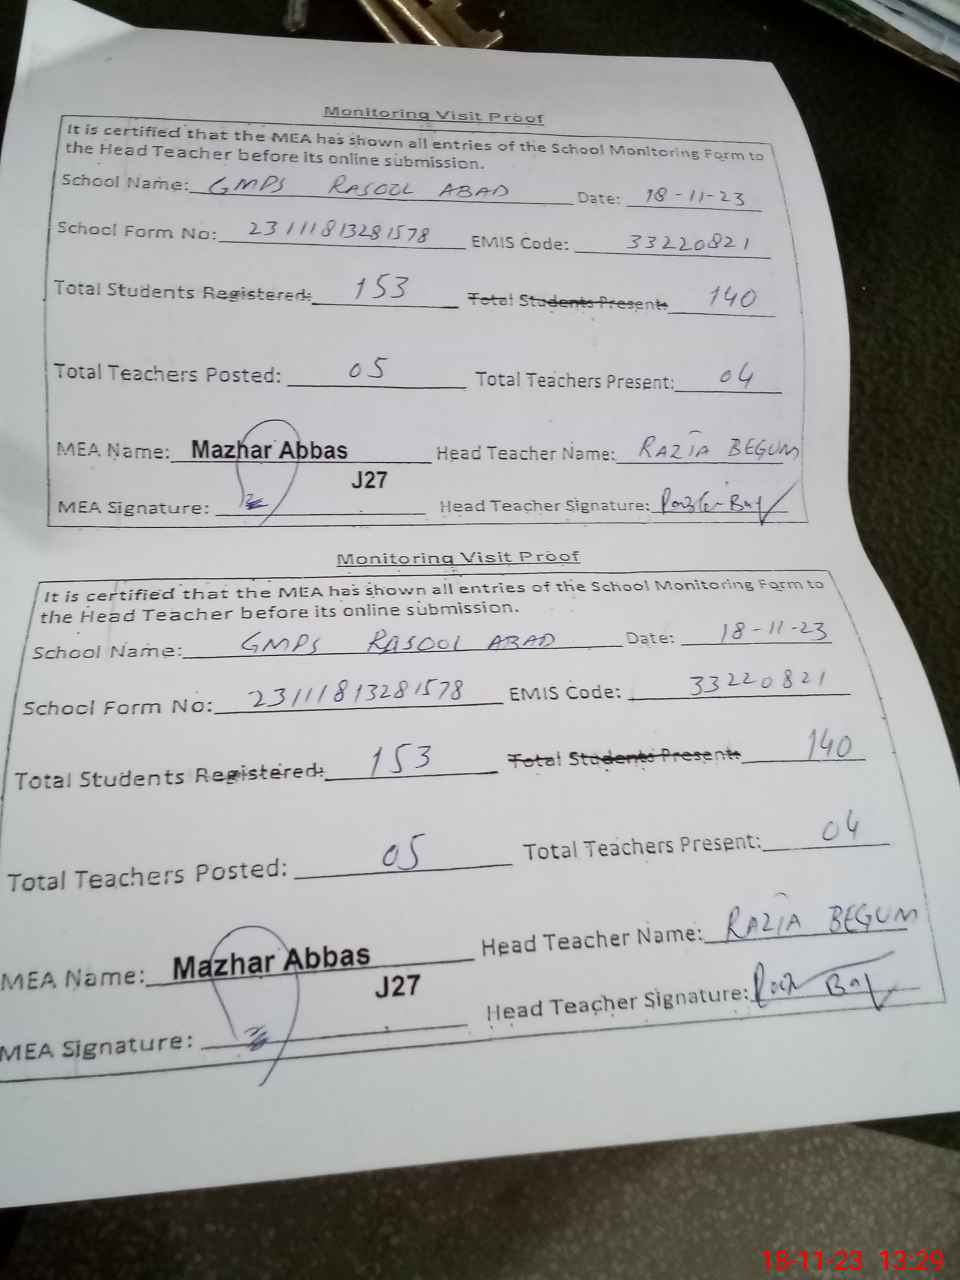 Monitoring Visit Proof
It is certified that the MEA has shown all entries of the School Monitoring Form to
the Head Teacher before its online submission.
School Name: GMPS RASOOL ABAD Date: 18-11-23
School Form No: 23111813281578 EMIS Code: 33220821
Total Students Registered: 153 Total Students Present: 140
Total Teachers Posted: 05 Total Teachers Present: 04
MEA Name: Mazhar Abbas Head Teacher Name: RAZIA BEGUM
J27
MEA Signature: Head Teacher Signature:
Monitoring Visit Proof
It is certified that the MEA has shown all entries of the School Monitoring Form to
the Head Teacher before its online submission.
School Name: GMPS RASOOL ABAD Date: 18-11-23
School Form No: 23111813281578 EMIS Code: 33220821
Total Students Registered: 153 Total Students Present: 140
Total Teachers Posted: 05 Total Teachers Present: 04
MEA Name: Mazhar Abbas Head Teacher Name: RAZIA BEGUM
J27
MEA Signature: Head Teacher Signature:
18-11-23 13:29